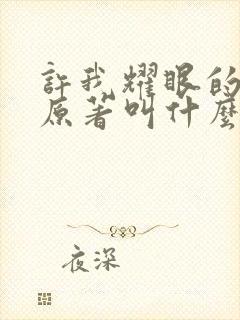 許我耀眼的
原著叫什麼
夜深